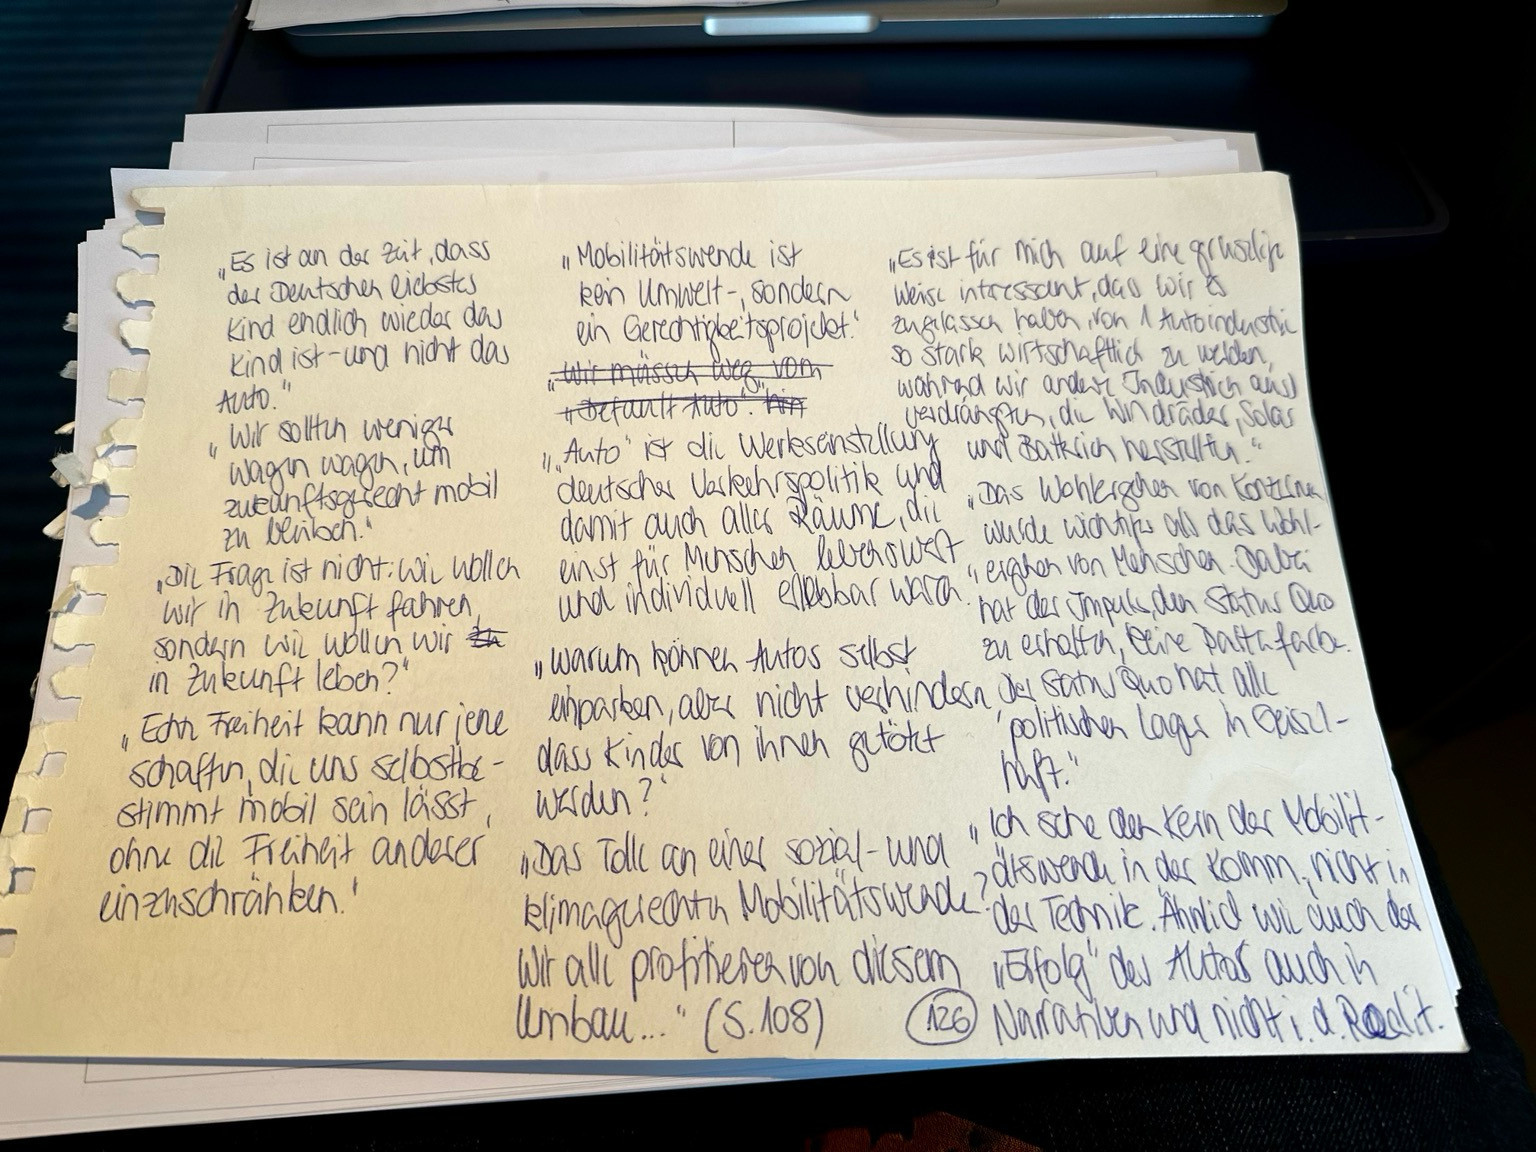 „Es ist an der Zeit, dass
der Deutschen liebstes
Kind endlich wieder das
Kind ist - und nicht das
Auto."
„Wir sollten weniger
wagen wagen, um
zukunftsgerecht mobil
zu bleiben."
„Die Frage ist nicht: wie wollen
wir in Zukunft fahren,
sondern wie wollen wir
in Zukunft leben?"
„Echte Freiheit kann nur jene
schaffen, die uns selbstbe-
stimmt mobil sein lässt,
ohne die Freiheit anderer
einzuschränken."
„Mobilitätswende ist
kein Umwelt-, sondern
ein Gerechtigkeitsprojekt."
„Wir müssen weg vom
„Default Auto". hin
„„Auto" ist die Werkseinstellung
deutscher Verkehrspolitik und
damit auch aller Räume, die
einst für Menschen lebenswert
und individuell erlebbar waren.
„Warum können Autos selbst
einparken, aber nicht verhindern
dass Kinder von ihnen getötet
werden?"
„Das Tolle an einer sozial- und
klimagerechten Mobilitätswende?
Wir alle profitieren von diesem
Umbau..." (S. 108)
„Es ist für mich auf eine gruselige
Weise intressant, das wir es
zugelassen haben, von 1 Autoindustrie
so stark wirtschaftlich zu werden,
während wir andere Industrien aus
verdrängten, die Windräder, Solar
und Batterien herstellten."
„Das Wohlergehen von Konzernen
wurde wichtiger als das Wohl-
ergehen von Menschen. Dabei
hat der Impuls, den Status Quo
zu erhalten, keine Parteifarbe.
Der Status Quo hat alle
politischen Lager in Geisel-
haft."
„Ich sehe den Kern der Mobilit-
ätswende in der Komm., nicht in
der Technik. Ähnlich wie auch der
„Erfolg" des Autos auch in
126 Narrativen und nicht i. d. Realit.